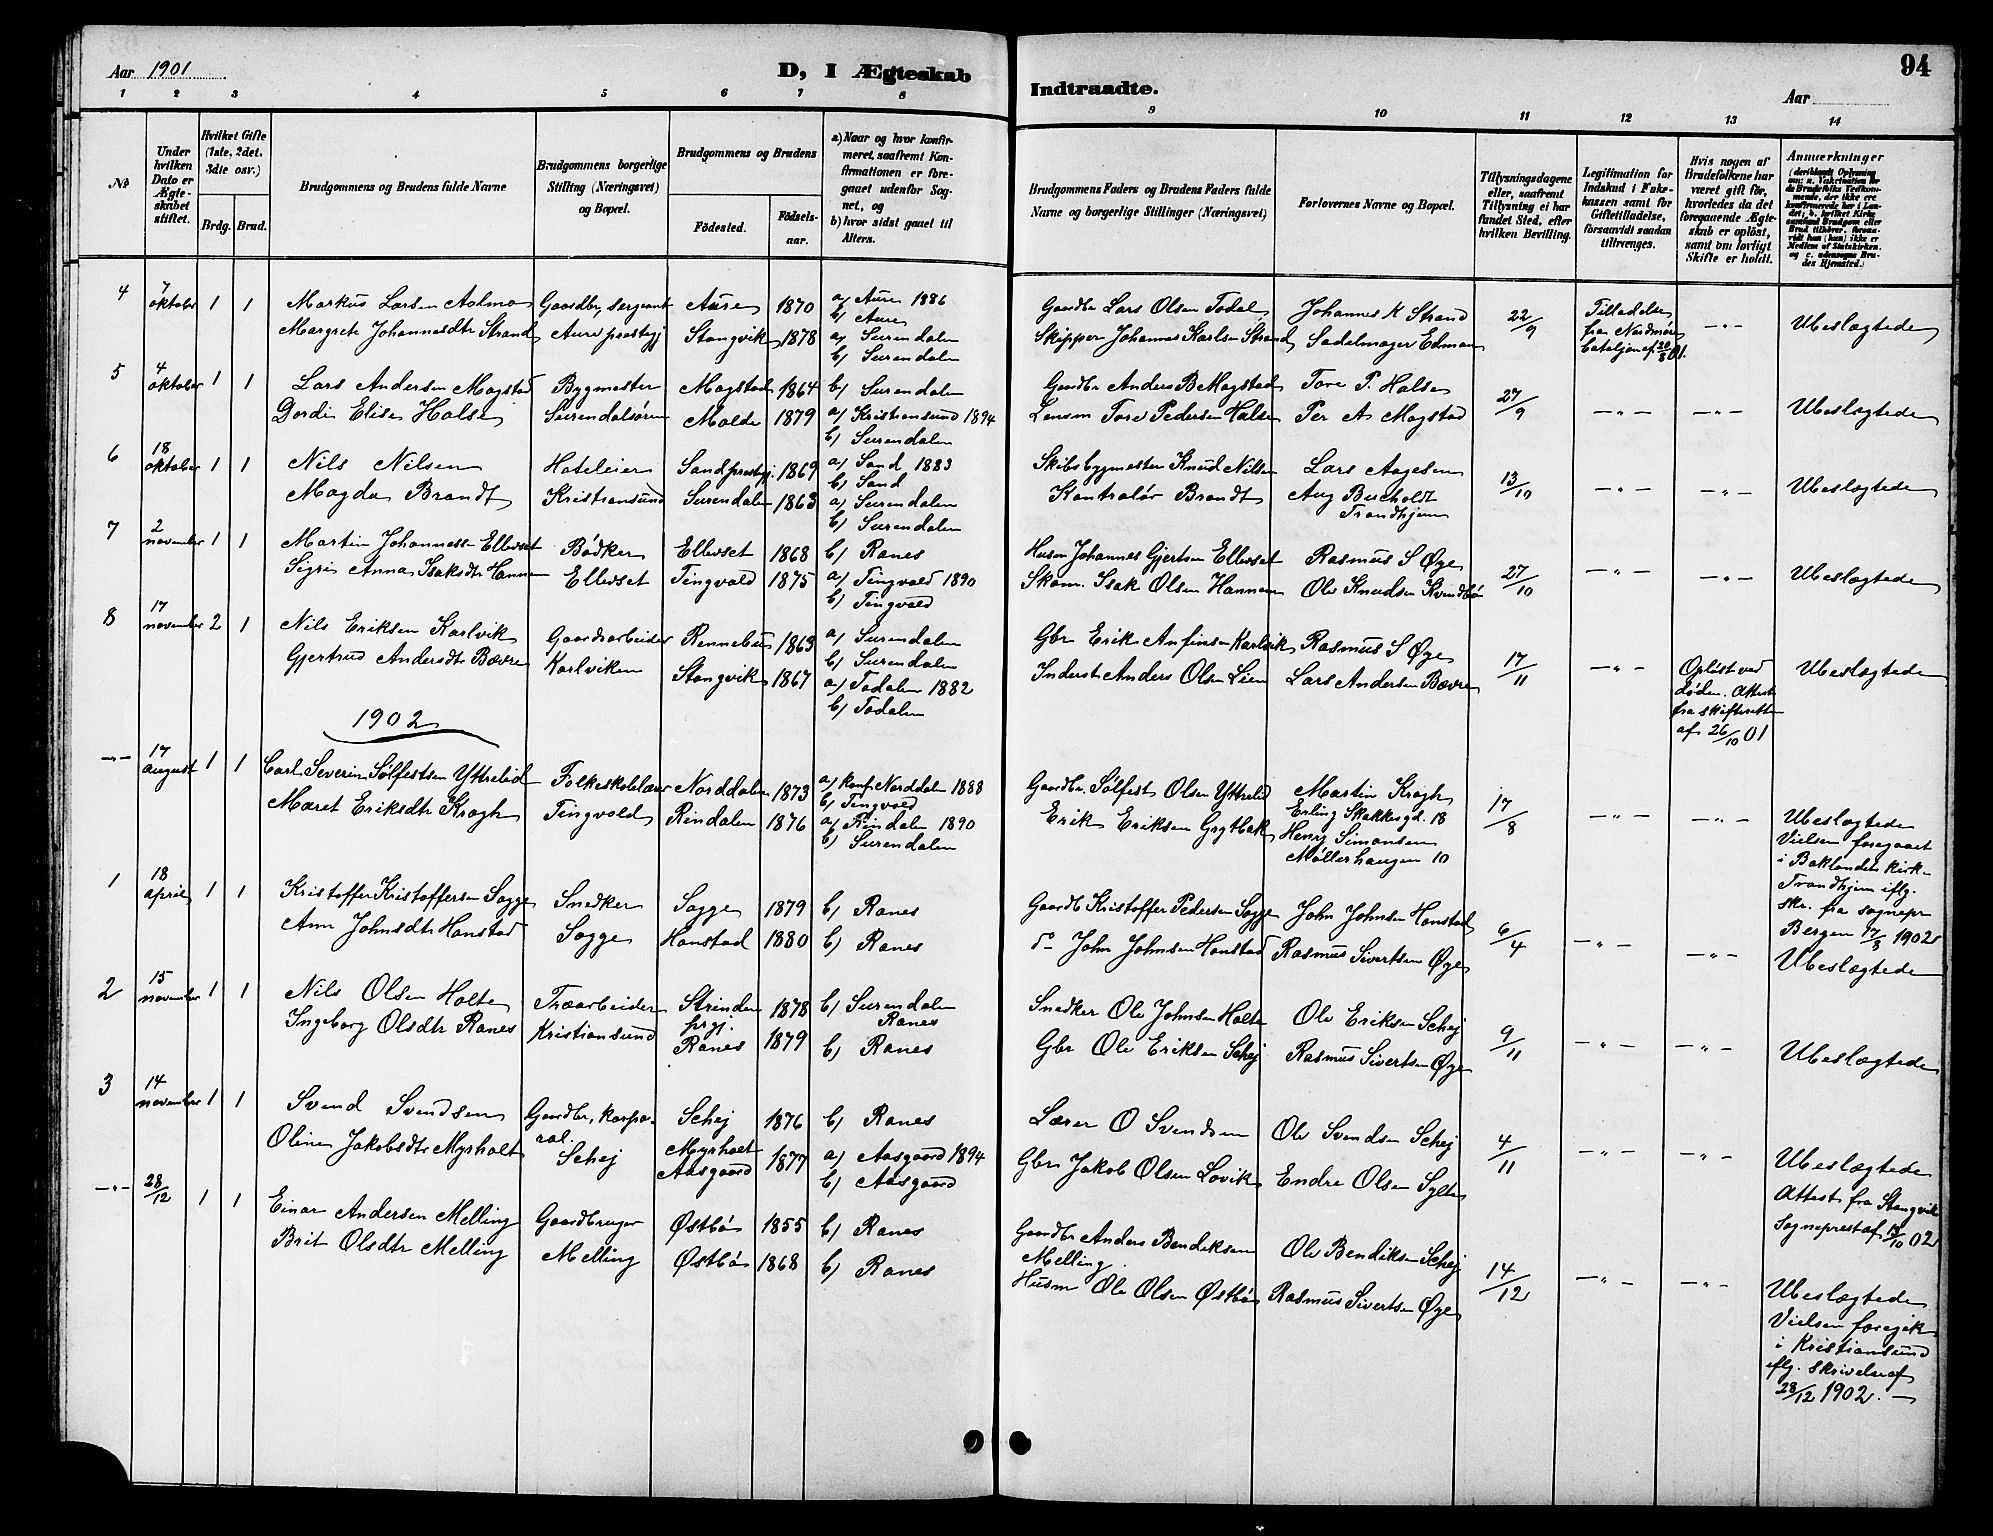 Aar 1901
D, I Ægteskab
Indtraadte.
94
Aar
1 2 3 4 5 6 7 8 9 10 11 12 13 14
No
Under hvilken Dato er Ægteskabet stiftet.
Hvilket Gifte (1ste, 2det, 3die osv.)
Brdg. Brud.
Brudgommens og Brudens fulde Navne
Brudgommens borgerlige Stilling (Næringsvei) og Bopæl.
Brudgommens og Brudens
Födested.
Födselsaar.
a) Naar og hvor konfirmeret, saafremt Konfirmationen er foregaaet udenfor Sognet, og
b) hvor sidst gaaet til Alters.
Brudgommens Faders og Brudens Faders fulde Navne og borgerlige Stillinger (Næringsvei)
Forlovernes Navne og Bopæl.
Tillysningsdagene eller, saafremt Tillysning ei har fundet Sted, efter hvilken Bevilling.
Legitimation for Indskud i Fakekassen samt for Giftetilladelse, forsaavidt saadan tiltrænges.
Hvis nogen af Brudefolkene har været gift för, hvorledes da det foregaaende Ægteskab er oplöst, samt om lovligt Skifte er holdt.
Anmærkninger
4 7 oktober 1 1
Markus Larsen Aalmo
Margrete Johannesdtr Strand
Gaardbr, sergeant
Aure prestgj
Aure 1870
Stangvik 1878
a) Aure 1886
b) Aure
a) Surendalen
b) Surendalen
Gaardbr Lars Olsen Todal
Skipper Johannes Karlsen Strand
Johannes K Strand
Sadelmager Edman
22/9
Tilladelse
fra Nordmøre
bataljon af 20/8 01.
—"—
Ubeslægtede
5 4 oktober 1 1
Lars Andersen Mogstad
Dordi Elise Halse
Bygmester
Surendalsøren
Mogstad 1864
Molde 1879
b) Surendalen
a) Kristiansund 1894
b) Surendalen
Gaardbr Anders B Mogstad
Lensm Tore Pedersen Halse
Tore P. Halse
Per A Mogstad
27/9
—"— —"—
Ubeslægtede
6 18 oktober 1 1
Nils Nilsen
Magda Brandt
Hoteleier
Kristiansund
Sand prestgj. 1869
Surendalen 1863
a) Sand 1883
b) Sand
a) Surendalen
b) Surendalen
Skibsbygmester Knud Nilsen
Kontralør Brandt
Lars Aagesen
Aug Bucholdt
Trondhjem
13/10
—"— —"—
Ubeslægtede
7 2 november 1 1
Martin Johannessen Ellevset
Sigri Anna Isaksdtr Hannem
Bødker
Ellevset
Ellevset 1868
Tingvold 1875
b) Ranes
a) Tingvold 1890
b) Tingvold
Husm Johannes Gjertsen Ellevset
Skom. Isak Olsen Hannem
Rasmus S Øye
Ole Knudsen Kvendbø
27/10
—"— —"—
Ubeslægtede
8 17 november 2 1
Nils Eriksen Karlvik
Gjertrud Andersdtr Bævre
Gaardsarbeider
Karlviken
Rennebu 1863
Stangvik 1867
a) Surendalen
b) Surendalen
a) Todalen 1882
b) Todalen
Gbr Erik Anfinsen Karlvik
Inderst Anders Olsen Lien
Rasmus S Øye
Lars Andersen Bævre
17/11
—"—
Opløst ved
døden. Attest
fra skifteretten
af 26/10 01
Ubeslægtede
1902
—"— 17 august 1 1
Carl Severin Sølfestsen Ytterlid
Maret Eriksdtr Krogh
Folkeskolelærer
Tingvold
Norddalen 1873
Rindalen 1876
a) konf Norddalen 1888
b) Tingvold
a) Rindalen 1890
b) Surendalen
Gaardbr. Sølfest Olsen Ytterlid
Erik Eriksen Grytbak
Martin Krogh
Erling Skakkesgd. 18
Henry Simonsen
Møllerhaugen 10
17/8
—"— —"—
Ubeslægtede
Vielsen foregaaet
i Baklandets kirke
Trondhjem iflg.
skr. fra sognepr
Bergen 17/9 1902
1 18 april 1 1
Kristoffer Kristoffersen Sogge
Ann Johnsdtr Honstad
Snedker
Sogge
Sogge 1879
Honstad 1880
b) Ranes
b) Ranes
Gaardb Kristoffer Pedersen Sogge
do John Johnsen Honstad
John Johnsen Honstad
Rasmus Sivertsen Øye
6/4
—"— —"—
Ubeslægtede
2 15 november 1 1
Nils Olsen Holte
Ingeborg Olsdtr Ranes
Træarbeider
Kristiansund
Strinden prgj. 1878
Ranes 1879
b) Surendalen
Ranes
b) Ranes
Snedker Ole Johnsen Holte
Gbr Ole Eriksen Schej
Ole Eriksen Schej
Rasmus Sivertsen Øye
9/11
—"— —"—
Ubeslægtede
3 14 november 1 1
Svend Svendsen
Oline Jakobsdtr Myrholt
Gaardbr, korporal.
Schej
Schej 1876
Myrholt
Aasgaard 1877
b) Ranes
a) Aasgaard 1894
b) Aasgaard
Lærer O Svendsen
Gbr Jakob Olsen Lovik
Ole Svendsen Schej
Endre Olsen Sylte
4/11
—"— —"—
Ubeslægtede
Attest fra Stangvik
Sogneprest af 17/10 02
—"— 28/12 1 1
Einar Andersen Melling
Brit Olsdtr Melling
Gaardbruger
Melling
Østbø 1855
Østbø 1868
b) Ranes
b) Ranes
Gaardbr Anders Bendiksen
Melling.
Husm Ole Olsen Østbø
Ole Bendiksen Schej
Rasmus Sivertsen Øye
14/12
—"— —"—
Ubeslægtede
Vielsen foregik
i Kristiansund
iflg. skrivelse af
28/12 1902. —